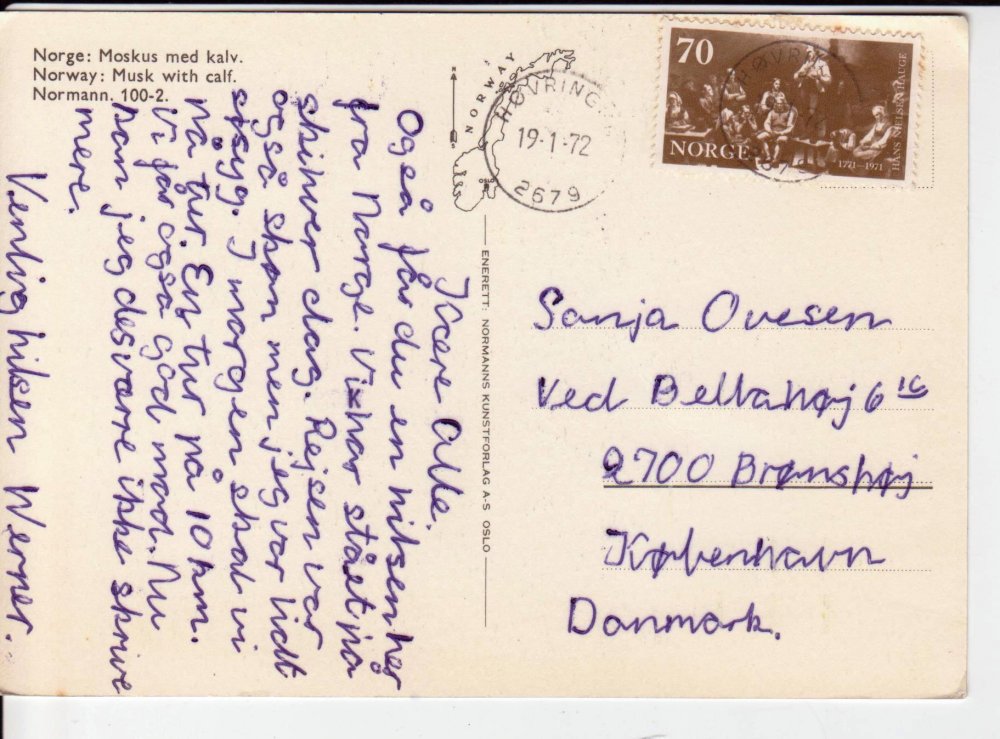 Norge: Moskus med kalv.
Norway: Musk with calf.
Normann. 100-2.
NORWAY
OSLO
HØVRINGEN
19-1-72
2679
70
NORGE
1771–1971
HANS NIELSEN HAUGE
HØVRI
Kære Alle.
Også får du en hilsen her
fra Norge. Vi har stået på
skihver dag. Rejsen var
også skøn men jeg var lidt
søsyg. I morgen skal vi
på tur En tur på 10 km.
Vi får også god mad. Nu
kan jeg desværre ikke skrive
mere.
Venlig hilsen Werner.
ENERETT: NORMANNS KUNSTFORLAG A-S OSLO
Sanja Ovesen
Ved Bellahøj 6
2700 Brønshøj
København
Danmark.